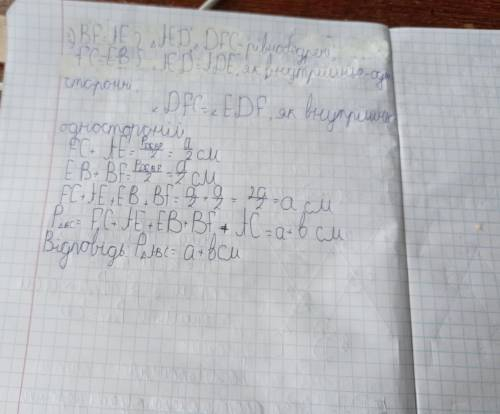 BF=AE }, AED, DFC-рівнобедрені
FC=EB }, AED=ADE, як внутрішньо-одно
сторонні.
∠DFC=∠EDF, як внутрішньо
односторонні
FC+AE=Pbedf/2=a/2 см
EB+BF=Pbedf/2=a/2 см
FC+AE+EB+BF=a/2+a/2=2a/2=a см
P△ABC=FC+AE+EB+BF+AC=a+b см
Відповідь P△ABC=a+b см